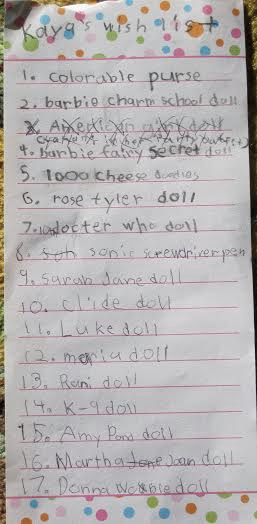 Kaya's wish list
1. colorable purse
2. barbie charm school doll
4. barbie fairy secret doll
5. 1000 cheese doodles
6. rose tyler doll
7. docter who doll
8. sonic screwdriver pen
9. sarah Jane doll
10. clide doll
11. Luke doll
12. maria doll
13. Rani doll
14. K-9 doll
15. Amy Pond doll
16. Martha Joan doll
17. Donna